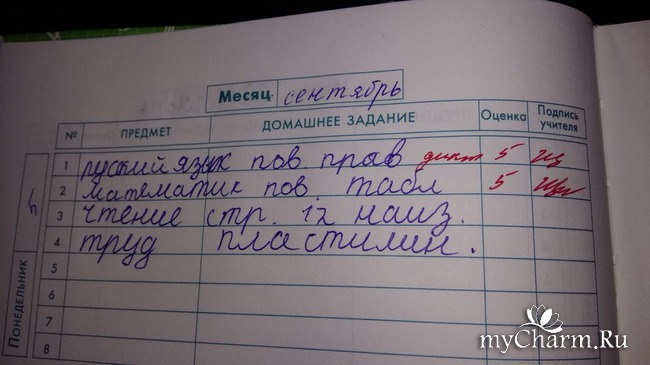 Месяц сентябрь
№ ПРЕДМЕТ ДОМАШНЕЕ ЗАДАНИЕ Оценка Подпись учителя
Понедельник
1 руский язык пов прав дикт 5
2 математик пов. табл 5
3 чтение стр. 12 наиз.
4 труд пластилин.
5
6
7
8
myCharm.Ru